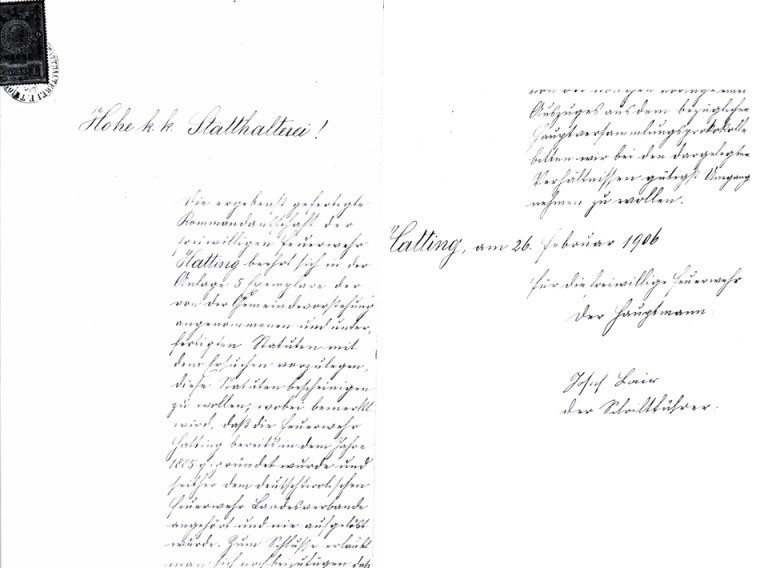 Hohe k. k. Statthalterei!
Die ergebenst gefertigte
Kommandantschaft der
freiwilligen Feuerwehr
Hatting beehrt sich in der
Anlage 5 Exemplare der
von der Gemeindevorstehung
angenommenen und unter-
fertigten Statuten mit
dem Ersuchen vorzulegen,
diese Statuten bescheinigen
zu wollen, wobei bemerkt
wird, daß die Feuerwehr
Hatting bereits in dem Jahre
1885 gegründet wurde und
seither dem deutschtirolischen
Feuerwehr Landesverbande
angehört und nie aufgelöst
wurde. Zum Schlusse erlaubt
man sich noch beizufügen daß
von der
Auszuges aus dem bezüglichen
Hauptversammlungsprotokolle
bitten wir bei den dargelegten
Verhältnissen gütigst Umgang
nehmen zu wollen.
Hatting, am 26. Februar 1906
für die freiwillige Feuerwehr
Der Hauptmann:
Josef
der Schriftführer: